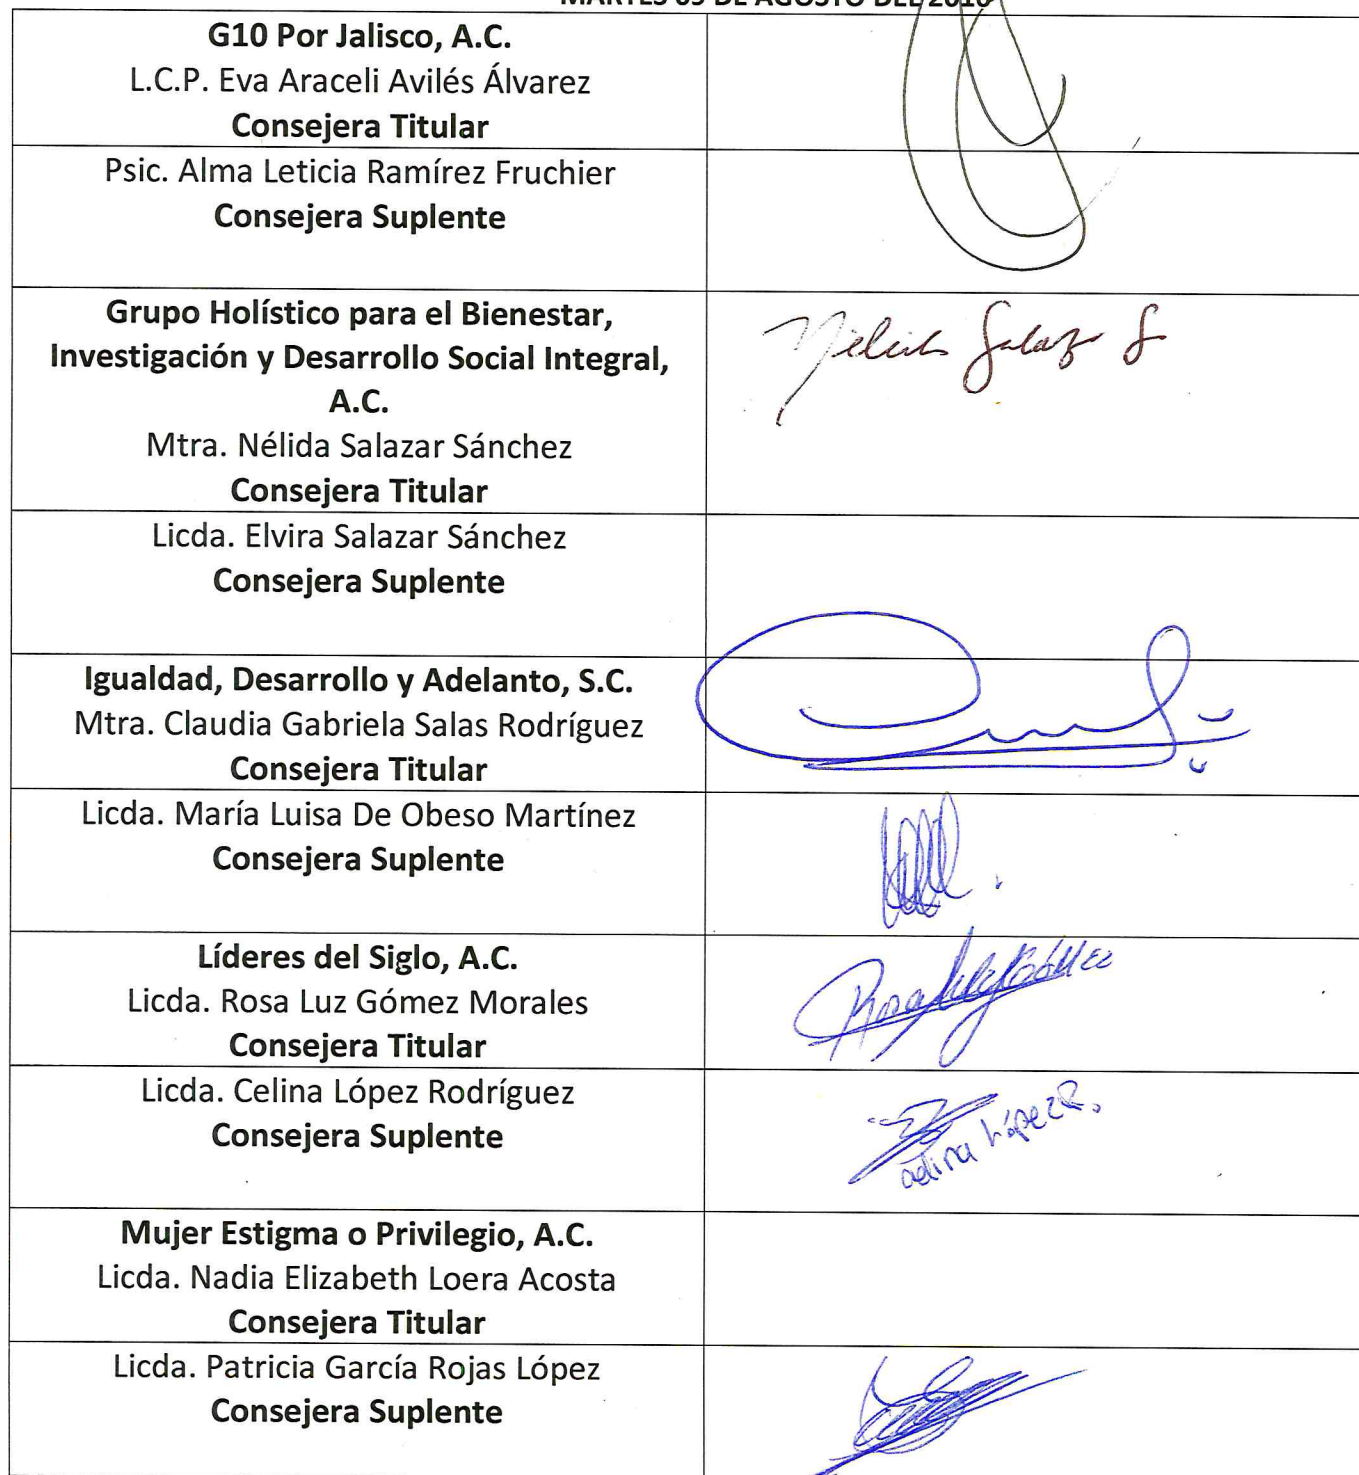 MARTES 09 DE AGOSTO DEL 2016
G10 Por Jalisco, A.C.
L.C.P. Eva Araceli Avilés Álvarez
Consejera Titular
Psic. Alma Leticia Ramírez Fruchier
Consejera Suplente
Grupo Holístico para el Bienestar,
Investigación y Desarrollo Social Integral,
A.C.
Mtra. Nélida Salazar Sánchez
Consejera Titular
Nélida Salazar S
Licda. Elvira Salazar Sánchez
Consejera Suplente
Igualdad, Desarrollo y Adelanto, S.C.
Mtra. Claudia Gabriela Salas Rodríguez
Consejera Titular
Licda. María Luisa De Obeso Martínez
Consejera Suplente
Líderes del Siglo, A.C.
Licda. Rosa Luz Gómez Morales
Consejera Titular
Rosa Luz Gómez
Licda. Celina López Rodríguez
Consejera Suplente
Celina López R.
Mujer Estigma o Privilegio, A.C.
Licda. Nadia Elizabeth Loera Acosta
Consejera Titular
Licda. Patricia García Rojas López
Consejera Suplente